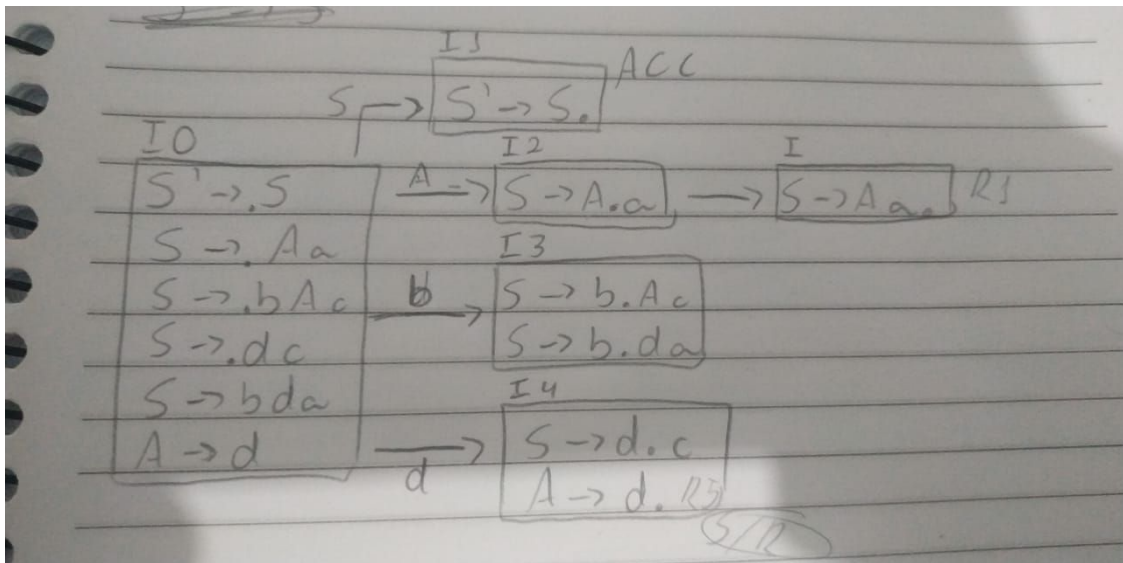 I1
S' -> S. ACC
S
I0
S' -> .S
S -> .Aa
S -> .bAc
S -> .dc
S -> bda
A -> d
A
I2
S -> A.a
I
S -> Aa. R1
b
I3
S -> b.Ac
S -> b.da
d
I4
S -> d.c
A -> d. R5
S/R